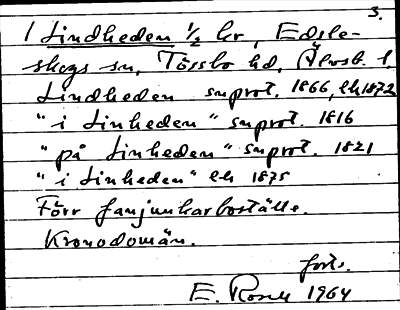 3.
1 Lindheden 1/2 kr, Edsle-
skogs sn, Tössbo hd, Älvsb. l.
Lindheden snprot. 1866, lk 1872
"i Linheden" snprot. 1816
"på Linheden" snprot. 1821
"i Linheden" lk 1875
Förr fanjunkarboställe.
Kronodomän.
forts.
E. 1964